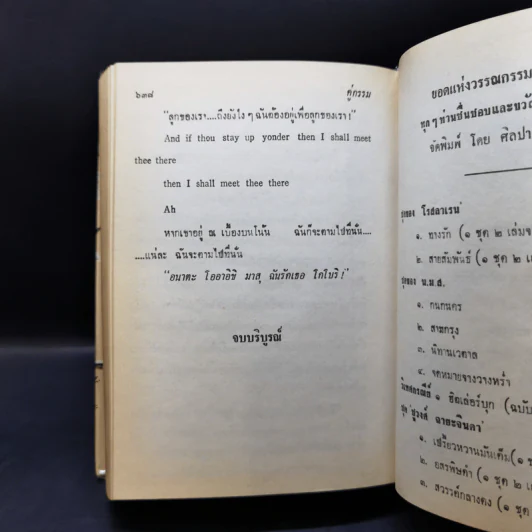 ๖๓๘ คู่กรรม
"ลูกของเรา....ถึงยังไง ๆ ฉันต้องอยู่เพื่อลูกของเรา !"
And if thou stay up yonder then I shall meet
thee there
then I shall meet thee there
Ah
หากเขาอยู่ ณ เบื้องบนโน้น ฉันก็จะตามไปที่นั้น....
....แน่ละ ฉันจะตามไปที่นั้น
"อนาตะ โออาอิชิ มาสุ ฉันรักเธอ โกโบริ !"
จบบริบูรณ์
ยอดแห่งวรรณกรรม
จัดพิมพ์ โดย ศิลปา
ชุดของ โรสลาเรน
๑. ทางรัก (๑ ชุด ๒ เล่มจ
๒. สายสัมพันธ์ (๑ ชุด ๒ เ
ชุดของ น.ม.ส.
๑. กนกนคร
๒. สามกรุง
๓. นิทานเวตาล
๔. จดหมายจางวางหร่ำ
๑. เสรียวหวานมันเค็ม(๑ ช
๒. ยสรพิษดำ (๑ ชุด ๒ เ
๓. สวรรค์กลางดง (๑ ช